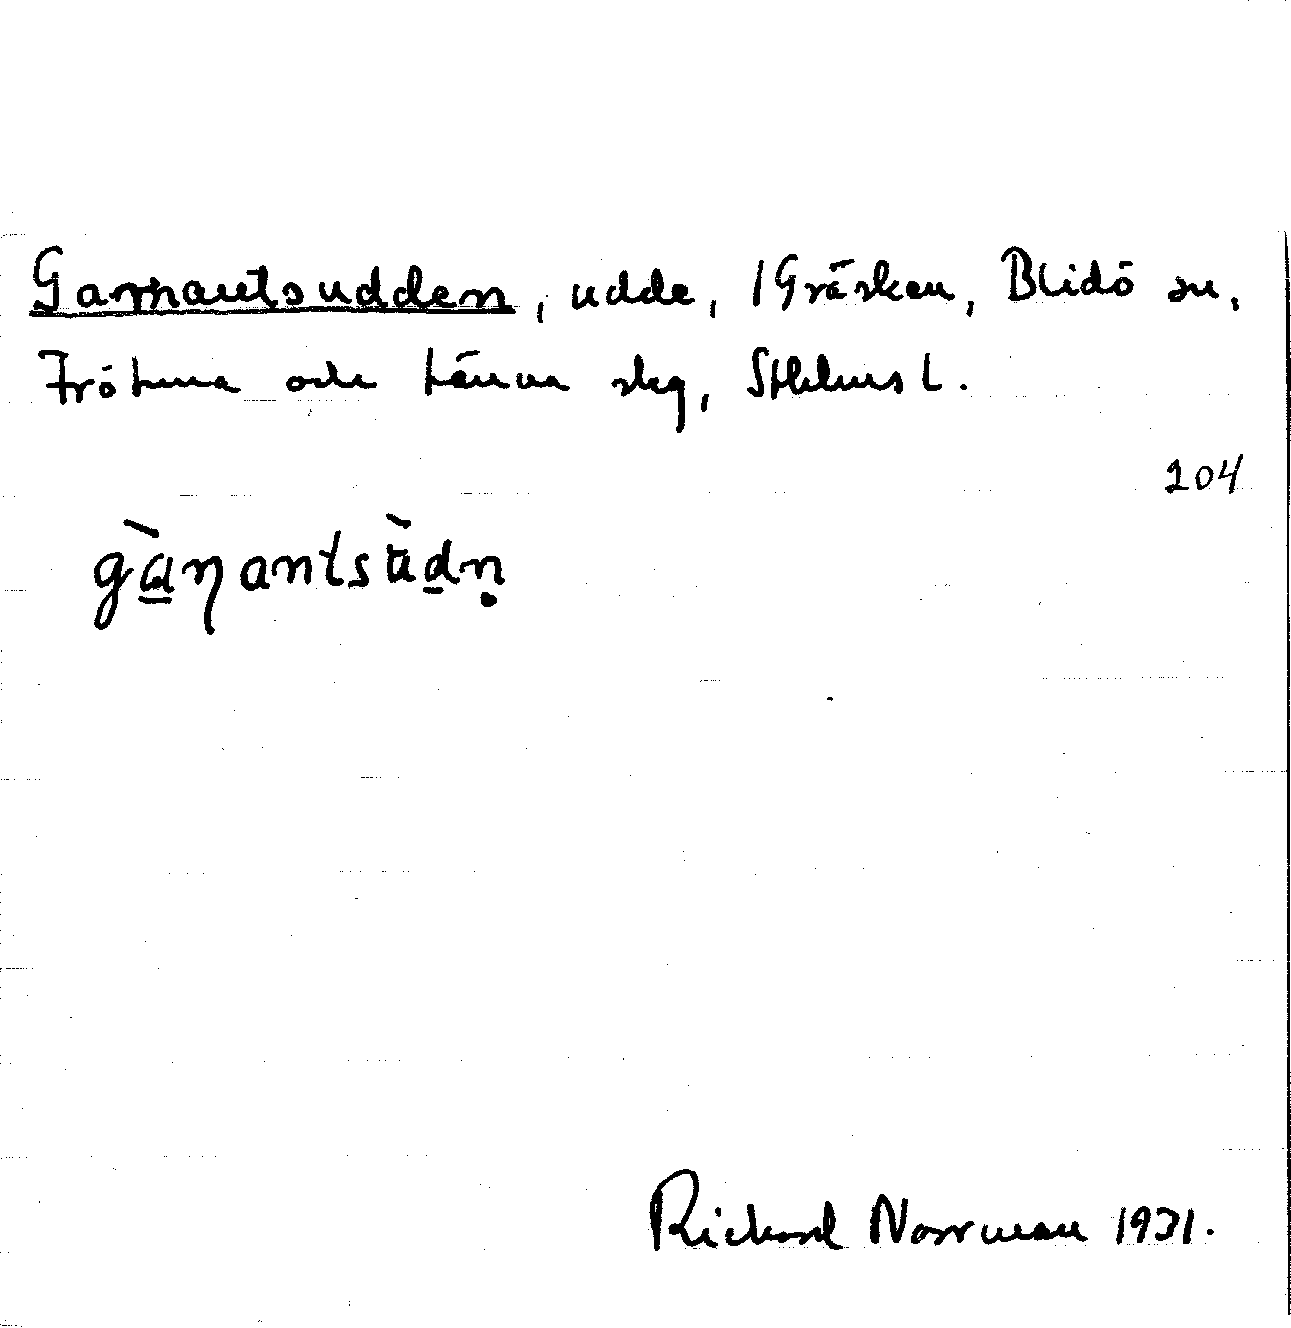 Garnantsudden, udde, 1 Gräsken, Blidö sn,
Frötuna och Länna slg, Sthlms l.
104
gàɳantsùdn̥
Rickard Norrman 1931.